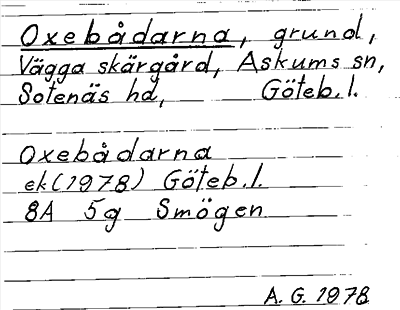 Oxebådarna, grund,
Vägga skärgård, Askums sn,
Sotenäs hd, Göteb.l.
Oxebådarna
ek(1978) Göteb.l.
8A 5g Smögen
A.G. 1978